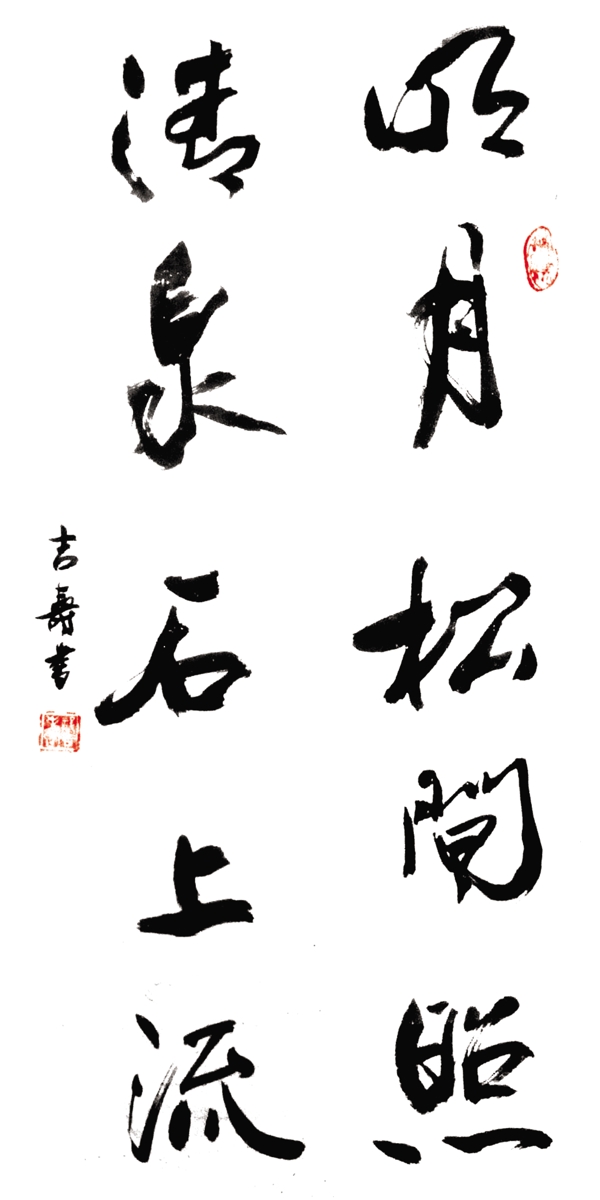 明月松間照
清泉石上流
吉壽書